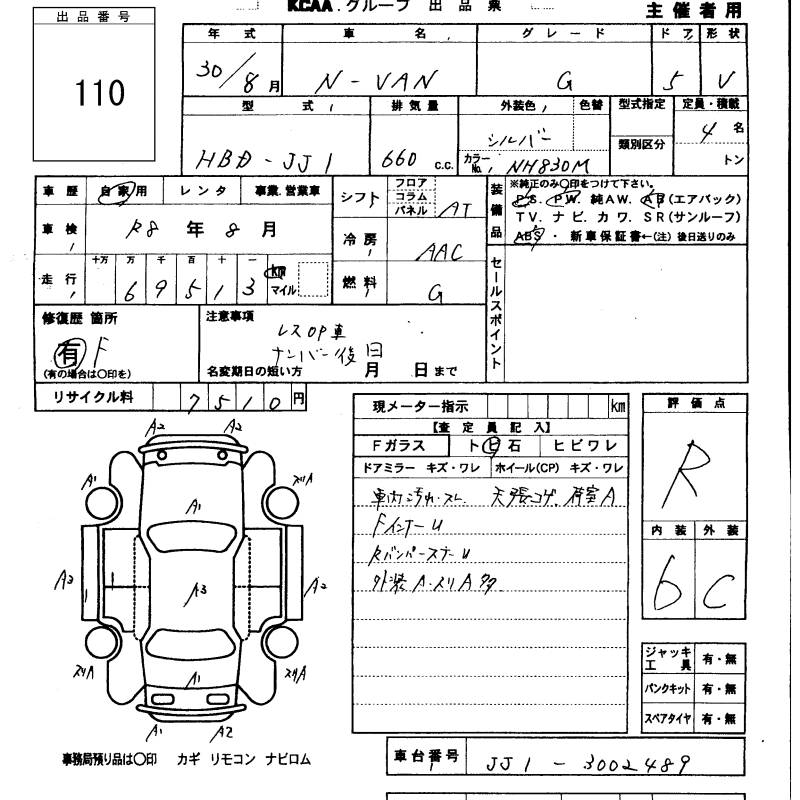 KCAA.グループ 出品票
主催者用
出品番号
110
年式 車名 グレード ドア 形状
30/8月 N-VAN G 5 V
型式 排気量 外装色 色替 型式指定 定員・積載
HBD-JJ1 660 c.c. シルバー カラーNo. NH830M 類別区分 4名 トン
車歴 自家用 レンタ 事業.営業車
シフト フロア コラム パネル AT
装備品 ※純正のみ○印をつけて下さい。
P.S. P.W. 純A.W. A.B(エアバック)
T.V. ナビ. カワ. S.R(サンルーフ)
ABS・新車保証書←(注)後日送りのみ
車検 R8年8月
冷房 AAC
走行 十万 万 千 百 十 一
69513 km マイル
燃料 G
セールスポイント
修復歴 箇所
有 F
(有の場合は○印を)
注意事項
レスOP車
ナンバー後日
名変期日の短い方 月 日まで
リサイクル料 7510円
現メーター指示 km
【査定員記入】
Fガラス トビ石 ヒビワレ
ドアミラー キズ・ワレ ホイール(CP) キズ・ワレ
車内汚れ・スレ 天張コゲ. 荷室A
FインナーU
RバンパーステーU
外装A・スリA多
評価点
R
内装 外装
6 C
A2 A2
A1 スリA
A1
A3 A3 A2
スリA スリA
A1
A1 A2
ジャッキ工具 有・無
パンクキット 有・無
スペアタイヤ 有・無
事務局預り品は○印 カギ リモコン ナビロム
車台番号 JJ1-3002489